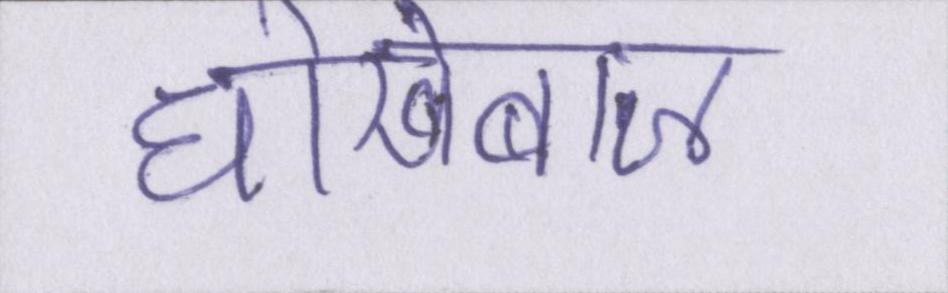 धोखेबाज